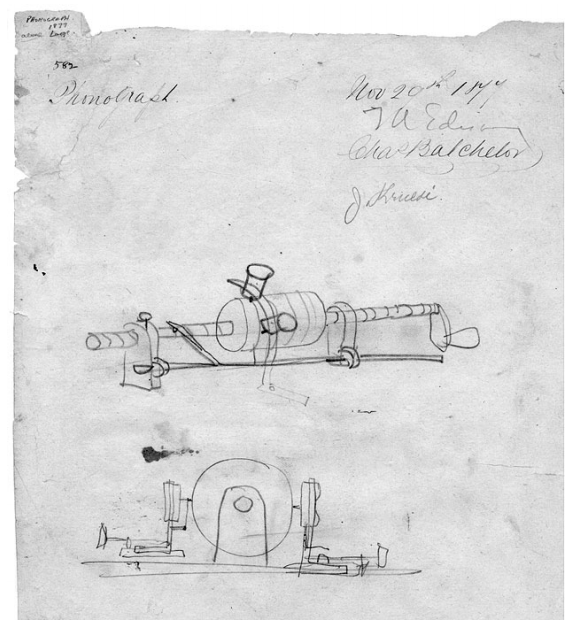 Phonograph
1877
582
Phonograph.
Nov 20th 1877
T A Edison
Chas Batchelor
J Kruesi.